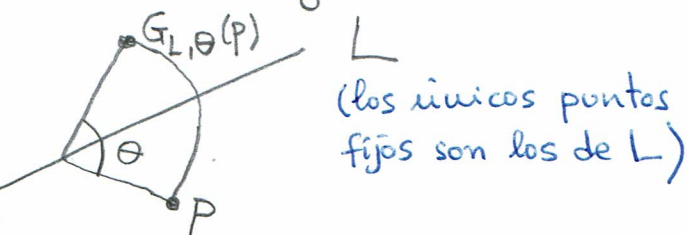 G_{L,θ}(P)
L
(los únicos puntos
fijos son los de L)
θ
P